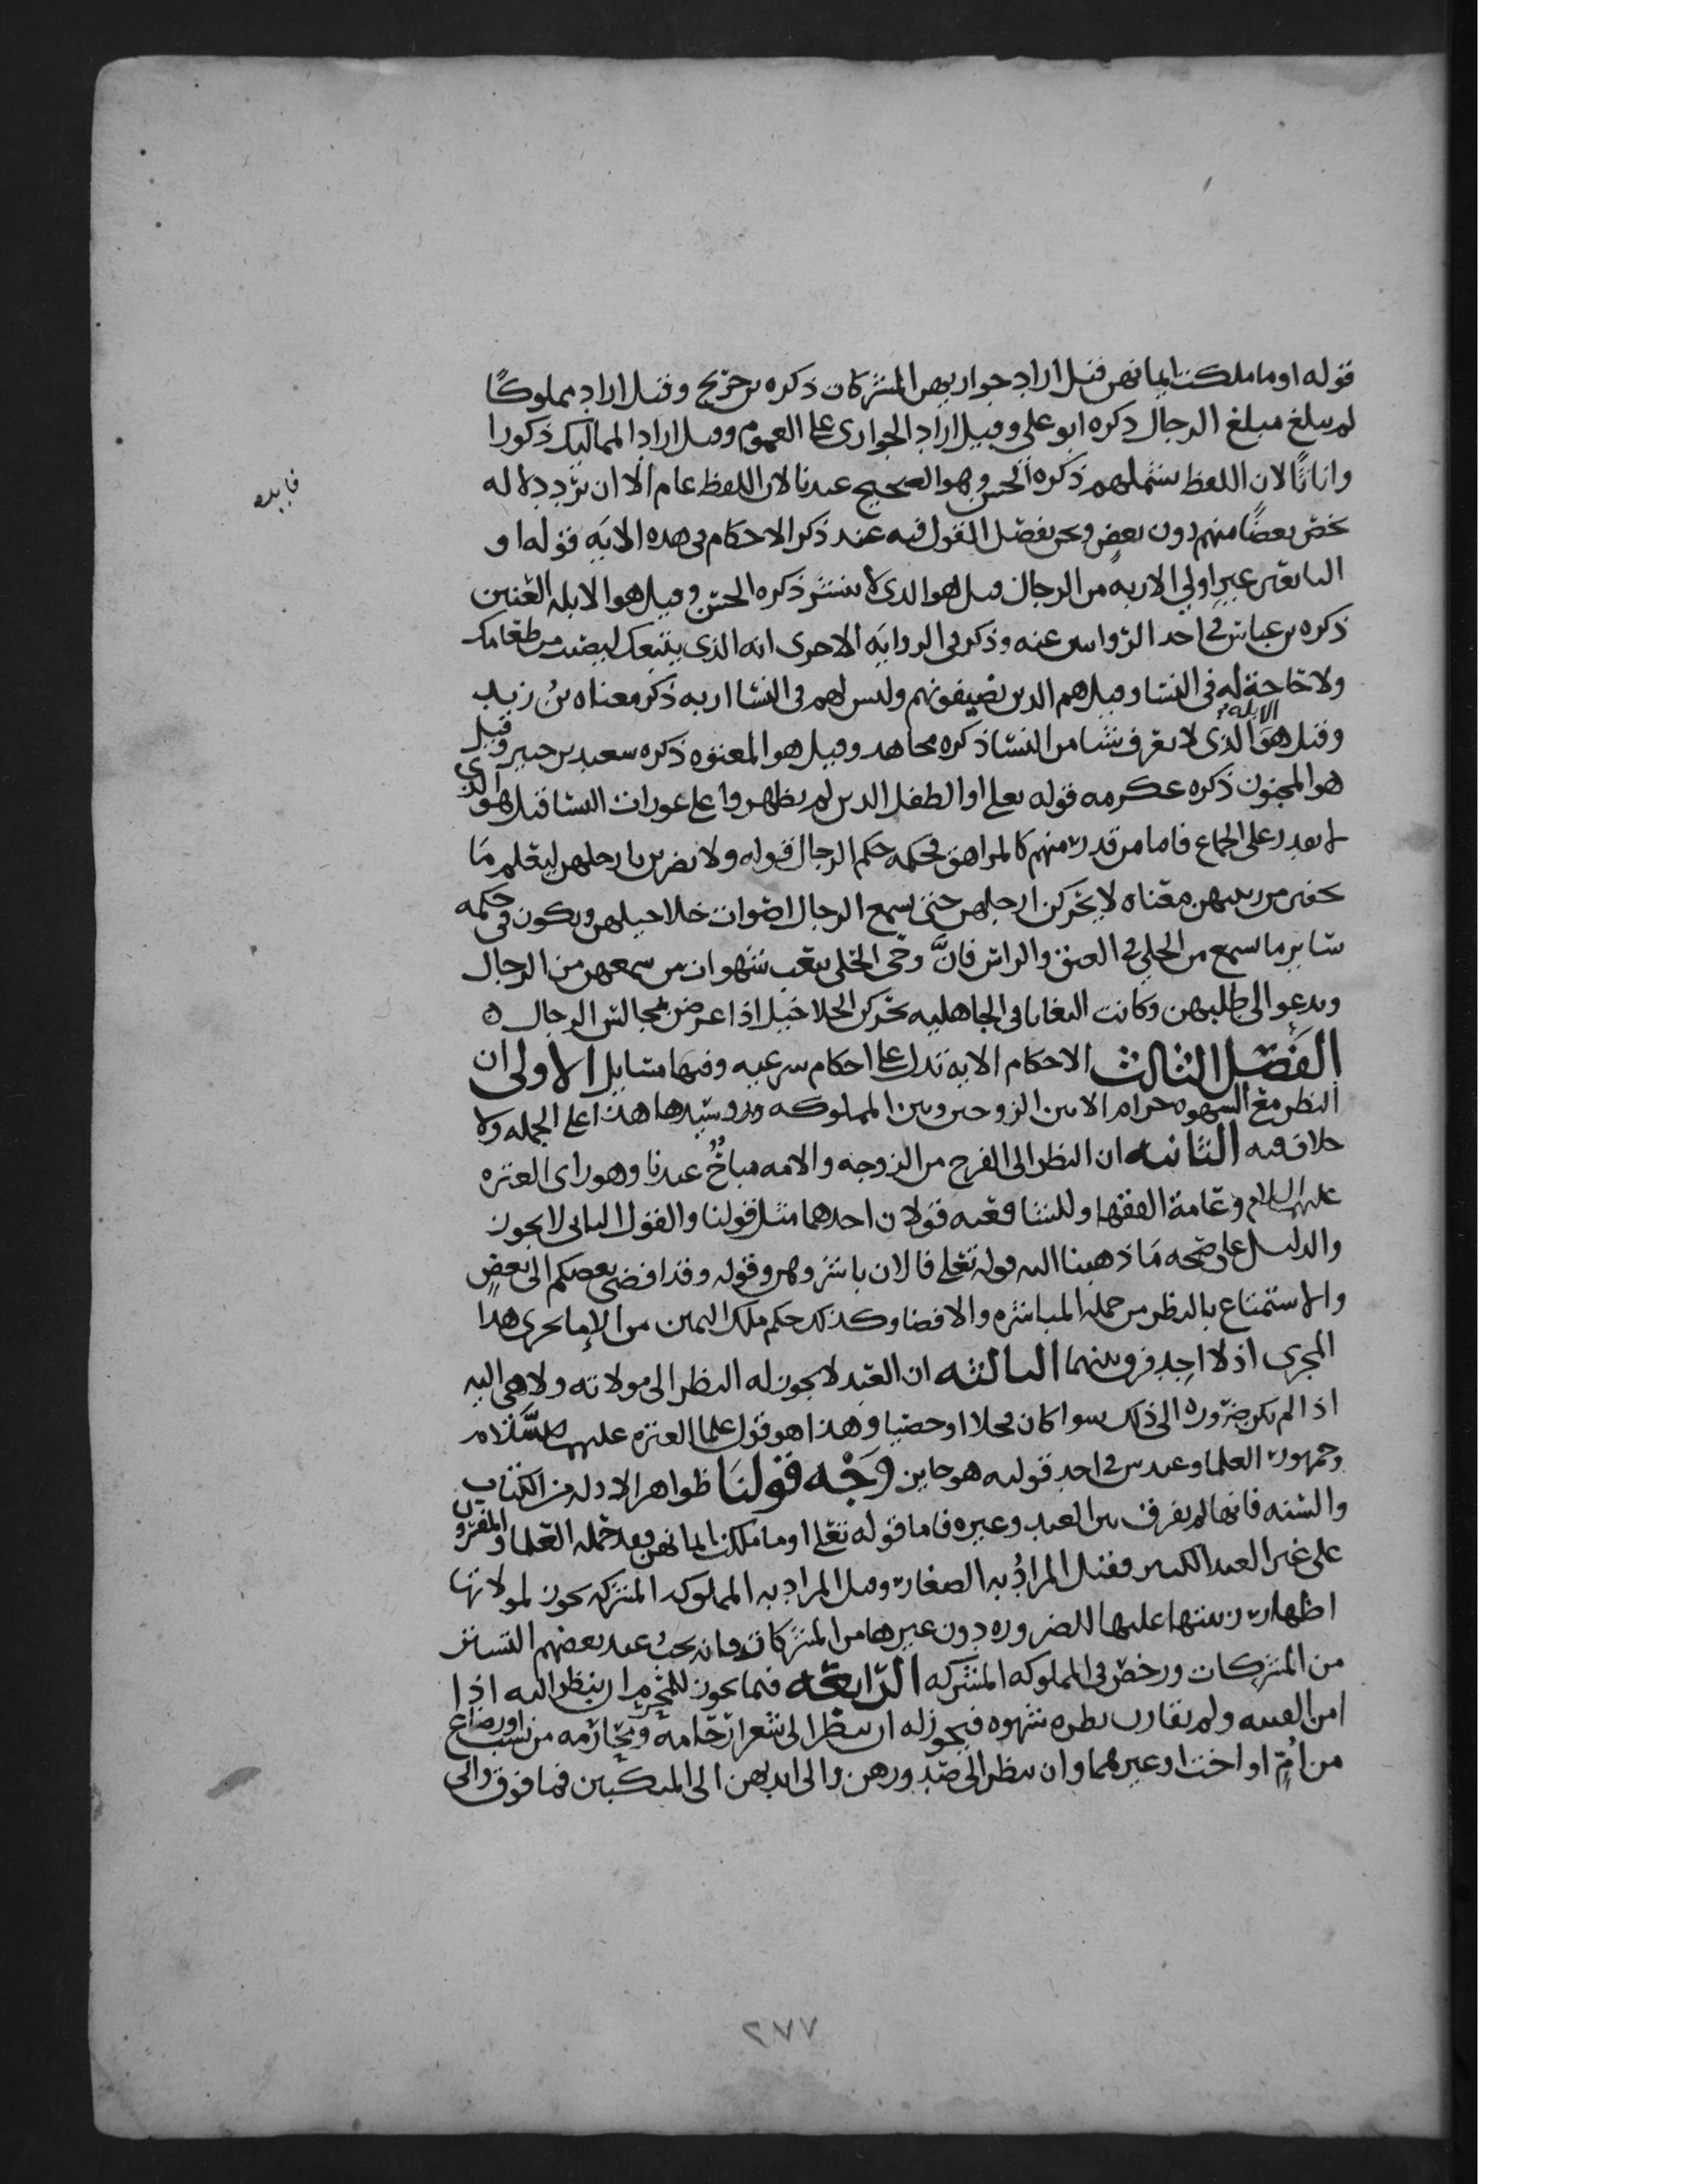 قوله او ما ملكت ايمانهن قيل اراد جواريهن المشركات ذكره بن جريج وقيل اراد مملوكًا
لم يبلغ مبلغ الرجال ذكره ابو علي وقيل اراد الجواري على العموم وقيل اراد المماليك ذكورا
واناثًا لان اللفظ يشملهم ذكره الحسن وهو الصحيح عندنا لان اللفظ عام الا ان ترد دلاله
فايده
تخص بعضًا منهم دون بعض ونحن نفصل القول فيه عند ذكر الاحكام في هذه الايه قوله او
التابعين غير اولي الاربه من الرجال قيل هو الذي لا ينتشر ذكره الحسن وقيل هو الابله العنين
ذكره بن عباس في احد الروايتين عنه وذكر في الروايه الاخرى انه الذي يتبعك ليصيب من طعامك
ولا حاجة له في النسا وقيل هم الدين تضيفونهم وليس لهم في النسا اربه ذكر معناه بن زيد
وقيل هو الابله الذي لا يعرف شيا من النسا ذكره مجاهد وقيل هو المعتوه ذكره سعيد بن جبير وقيل
هو المجنون ذكره عكرمه قوله تعلى او الطفل الدين لم يظهروا على عورات النسا قيل هو الذي
لا يقدر على الجماع فاما من قدر منهم كالمراهق فحكمه حكم الرجال قوله ولا يضربن بارجلهن ليعلم ما
يخفين من زينتهن معناه لا يحركن ارجلهن حتى يسمع الرجال اصوات خلاخيلهن ويكون في حكمه
ساير ما يسمع من الحلي في العنق والراس فانَّ وحى الحلي يبعث شهوات من سمعهن من الرجال
ويدعو الى طلبهن وكانت البغايا في الجاهليه تحركن الخلاخيل اذا عرضن بمجالس الرجال ه
الفصل الثالث الاحكام الايه تدل على احكام شرعيه وفيها مسايل الاولى ان
النظر مع الشهوه حرام الا بين الزوجين وبين المملوكه وبين سيدها هذا على الجمله ولا
خلاف فيه الثانيه ان النظر الى الفرج من الزوجه والامه مباحٌ عندنا وهو راى العتره
عليهم السلام وعامة الفقها وللشافعيه قولان احدهما مثل قولنا والقول الثاني لا يجوز
والدليل على صحه ما ذهبنا اليه قوله تعلى فالان باشروهن وقوله وقد افضى بعضكم الى بعض
والاستمتاع بالنظر من جمله المباشره والافضا وكذلك حكم ملك اليمين من الإما يجري هذا
المجرى اذ لا احد فرق بينهما الثالثه ان العبد لا يجوز له النظر الى مولاته ولا هي اليه
اذا لم يكن ضروره الى ذلك سوا كان فحلا او خصيا وهذا هو قول علما العتره عليهم السَّلام
وجمهور العلما وعند ش في احد قوليه هو جايز وَجْه قولنَا ظواهر الادله من الكتاب
والسنه فانها لم يفرق بين العبد وغيره فاما قوله تعلى او ما ملكت ايمانهن فقد حمله العلما والمفسرون
على غير العبد الكبير فقيل المرادُ به الصغار وقيل المراد به المملوكه المشركه يجوز لمولاتها
اظهار زينتها عليها للضروره دون غيرها من المشركات فانه يجبُ عند بعضهم التستر
من المشركات ورخص في المملوكه المشركه الرابعه فيما يجوز للمحرم ان ينظر اليه اذا
امن الفتنه ولم يقارن نظره شهوه فيجوز له ان ينظر الى شعر ارحامه ومحارمه من نسب او رضاع
من امٍّ او اخت او غيرهما وان ينظر الى صدورهن والى ايديهن الى المنكبين فما فوق والى
٢٧٧